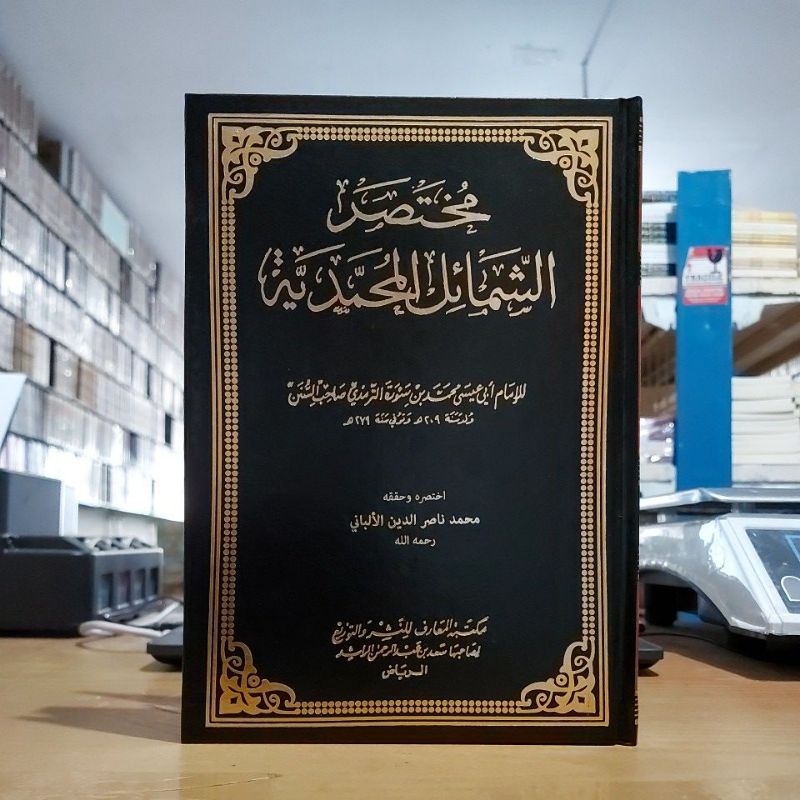 مُختَصَر
الشَّمَائِل المُحَمَّدِيَّة
للإمَام أبي عيسَى محمَّد بن سَوْرَة الترمذيّ صَاحِبُ السُّنَن
ولد سَنَة ٢٠٩ هـ وتوفي سَنَة ٢٧٩ هـ
اختصره وحققه
محمد ناصر الدين الألباني
رحمه الله
مكتبة المعارف للنَّشر والتوزيع
لصاحبها سعد بن عبد الرحمن الراشد
الريَاض